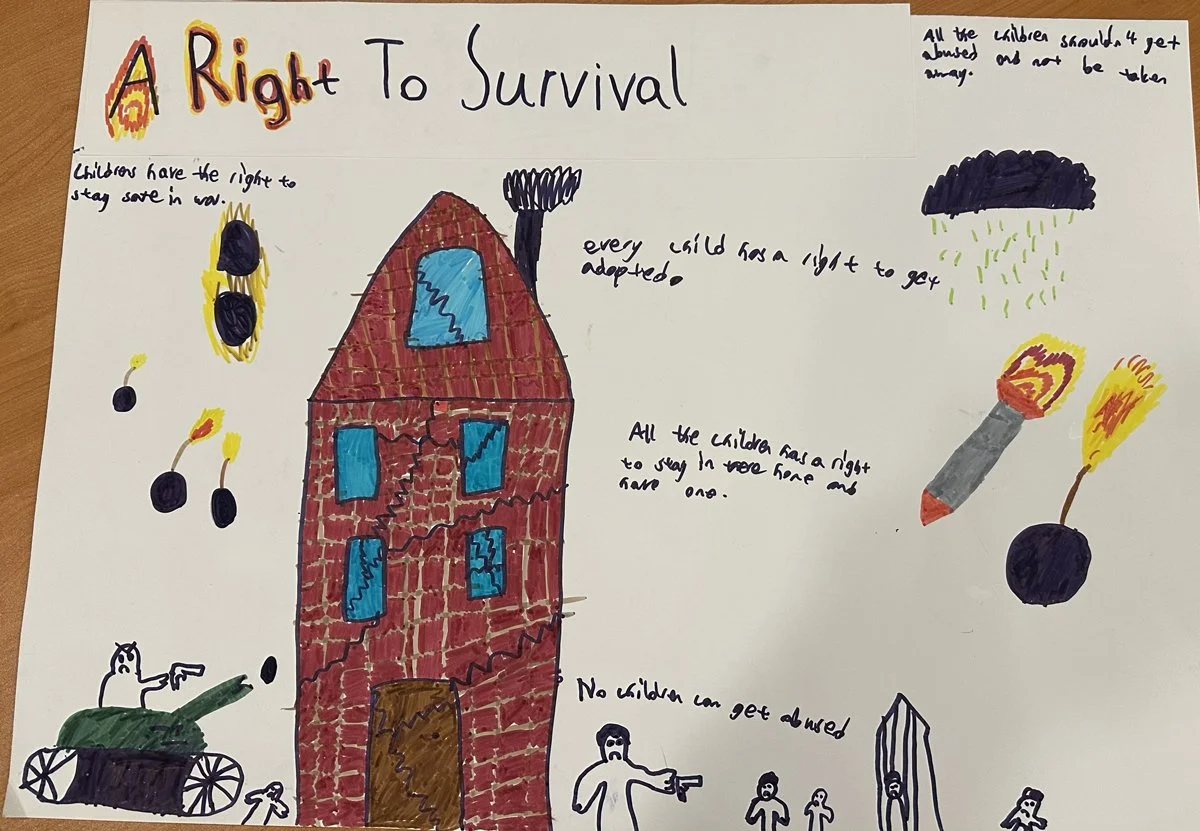 A Right To Survival
All the children shouldn't get
abused and not be taken
away.
Children have the right to
stay safe in war.
every child has a right to get
adopted.
All the children has a right
to stay in home and
have one.
No children can get abused